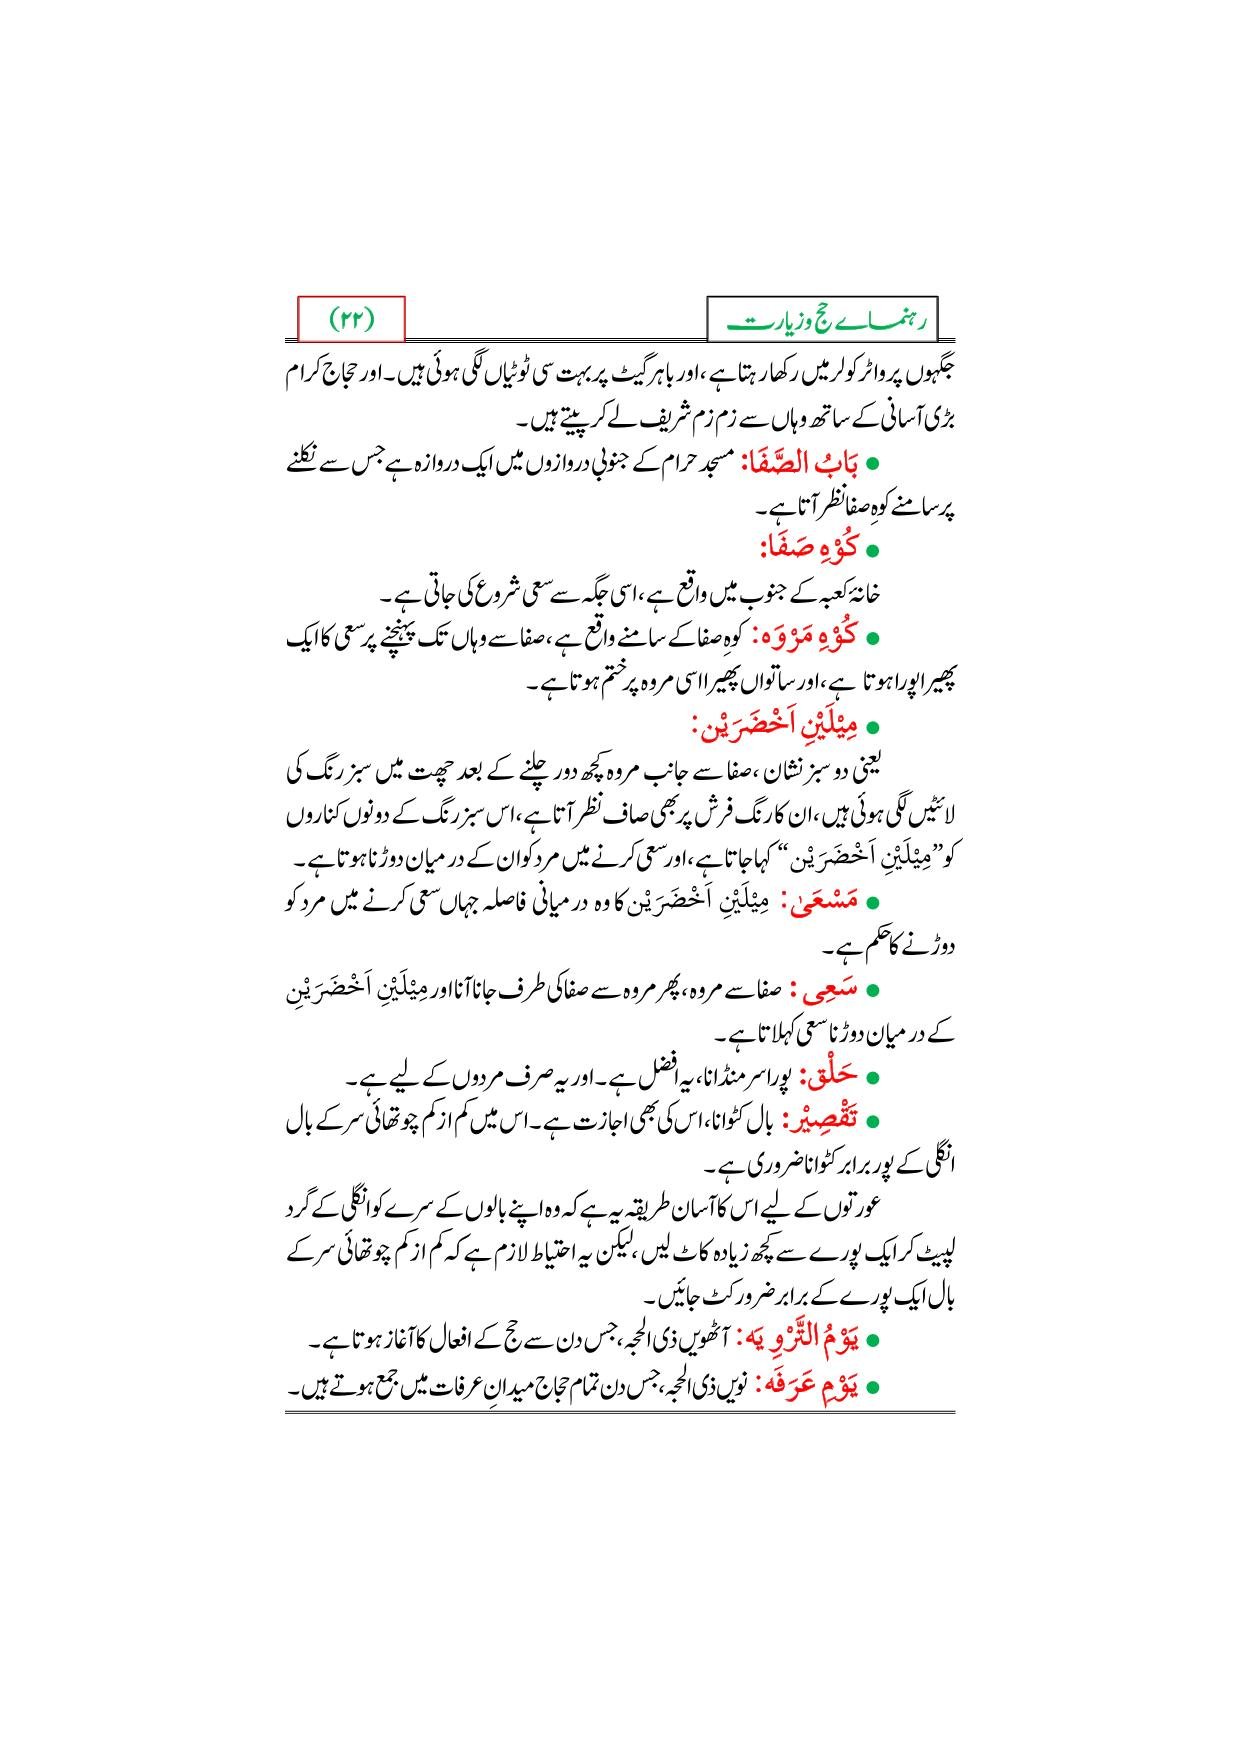 رہنماے حج و زیارت
(۲۲)
جگہوں پر واٹر کولر میں رکھا رہتا ہے، اور باہر گیٹ پر بہت سی ٹوٹیاں لگی ہوئی ہیں۔ اور حجاج کرام
بڑی آسانی کے ساتھ وہاں سے زم زم شریف لے کر پیتے ہیں۔
● بَابُ الصَّفَا: مسجد حرام کے جنوبی دروازوں میں ایک دروازہ ہے جس سے نکلنے
پر سامنے کوہِ صفا نظر آتا ہے۔
● کُوْہِ صَفَا:
خانۂ کعبہ کے جنوب میں واقع ہے، اسی جگہ سے سعی شروع کی جاتی ہے۔
● کُوْہِ مَرْوَہ: کوہِ صفا کے سامنے واقع ہے، صفا سے وہاں تک پہنچنے پر سعی کا ایک
پھیرا پورا ہوتا ہے، اور ساتواں پھیرا اسی مروہ پر ختم ہوتا ہے۔
● مِیْلَیْنِ اَخْضَرَیْن:
یعنی دو سبز نشان، صفا سے جانب مروہ کچھ دور چلنے کے بعد چھت میں سبز رنگ کی
لائٹیں لگی ہوئی ہیں، ان کا رنگ فرش پر بھی صاف نظر آتا ہے، اس سبز رنگ کے دونوں کناروں
کو ”مِیْلَیْنِ اَخْضَرَیْن“ کہا جاتا ہے، اور سعی کرنے میں مرد کو ان کے درمیان دوڑنا ہوتا ہے۔
● مَسْعَیٰ: مِیْلَیْنِ اَخْضَرَیْن کا وہ درمیانی فاصلہ جہاں سعی کرنے میں مرد کو
دوڑنے کا حکم ہے۔
● سَعِی: صفا سے مروہ، پھر مروہ سے صفا کی طرف جانا آنا اور مِیْلَیْنِ اَخْضَرَیْنِ
کے درمیان دوڑنا سعی کہلاتا ہے۔
● حَلْق: پورا سر منڈانا، یہ افضل ہے۔ اور یہ صرف مردوں کے لیے ہے۔
● تَقْصِیْر: بال کٹوانا، اس کی بھی اجازت ہے۔ اس میں کم از کم چوتھائی سر کے بال
انگلی کے پور برابر کٹوانا ضروری ہے۔
عورتوں کے لیے اس کا آسان طریقہ یہ ہے کہ وہ اپنے بالوں کے سرے کو انگلی کے گرد
لپیٹ کر ایک پورے سے کچھ زیادہ کاٹ لیں، لیکن یہ احتیاط لازم ہے کہ کم از کم چوتھائی سر کے
بال ایک پورے کے برابر ضرور کٹ جائیں۔
● یَوْمُ التَّرْوِیَہ: آٹھویں ذی الحجہ، جس دن سے حج کے افعال کا آغاز ہوتا ہے۔
● یَوْمِ عَرَفَہ: نویں ذی الحجہ، جس دن تمام حجاج میدانِ عرفات میں جمع ہوتے ہیں۔